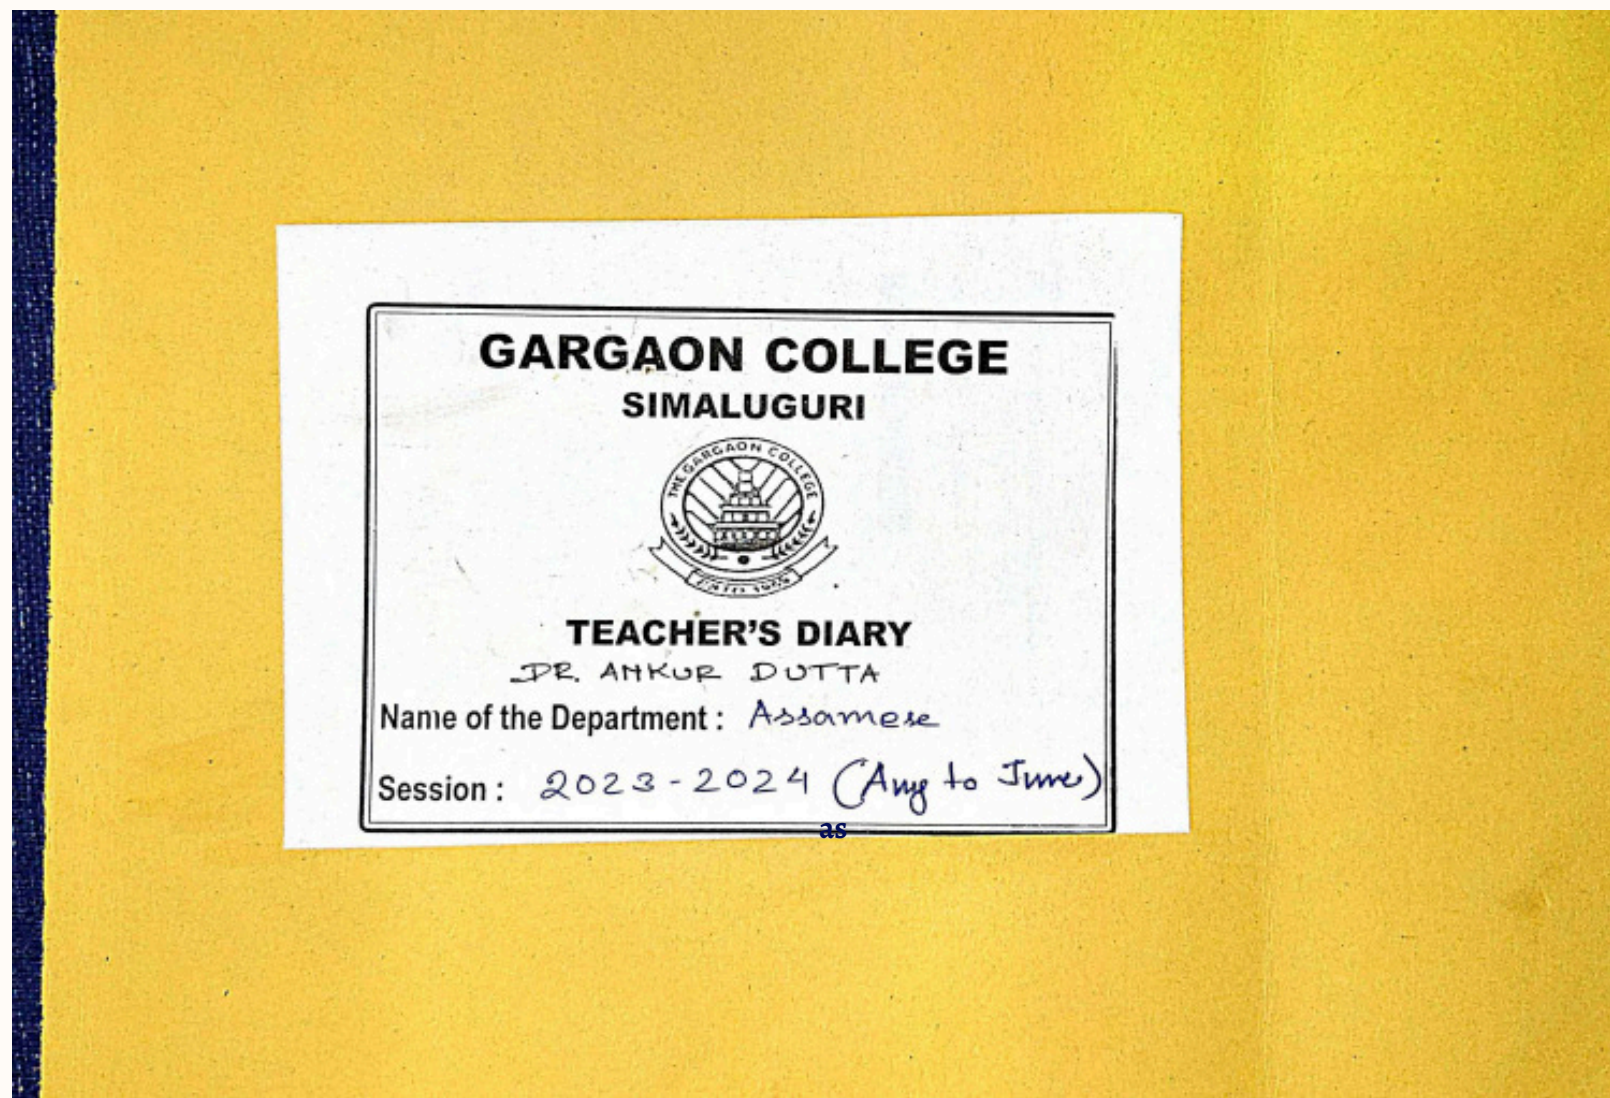 GARGAON COLLEGE
SIMALUGURI
THE GARGAON COLLEGE
ESTD 1959
TEACHER'S DIARY
DR. ANKUR DUTTA
Name of the Department : Assamese
Session : 2023-2024 (Aug to June)
as